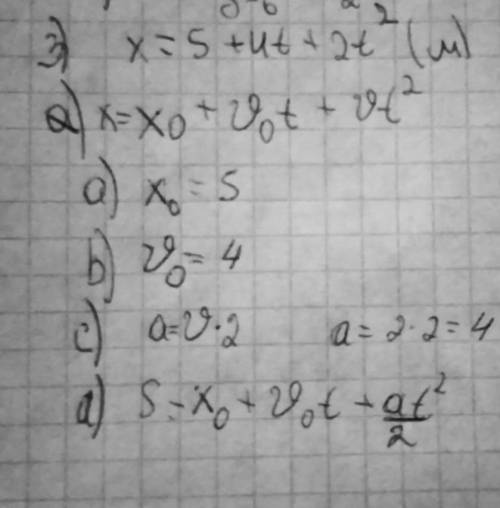 3) x = 5 + 4t + 2t² (м)
a) x = x₀ + ϑ₀t + ϑt²
a) x₀ = 5
b) ϑ₀ = 4
c) a = ϑ·2 a = 2·2 = 4
d) S = x₀ + ϑ₀t + at²/2